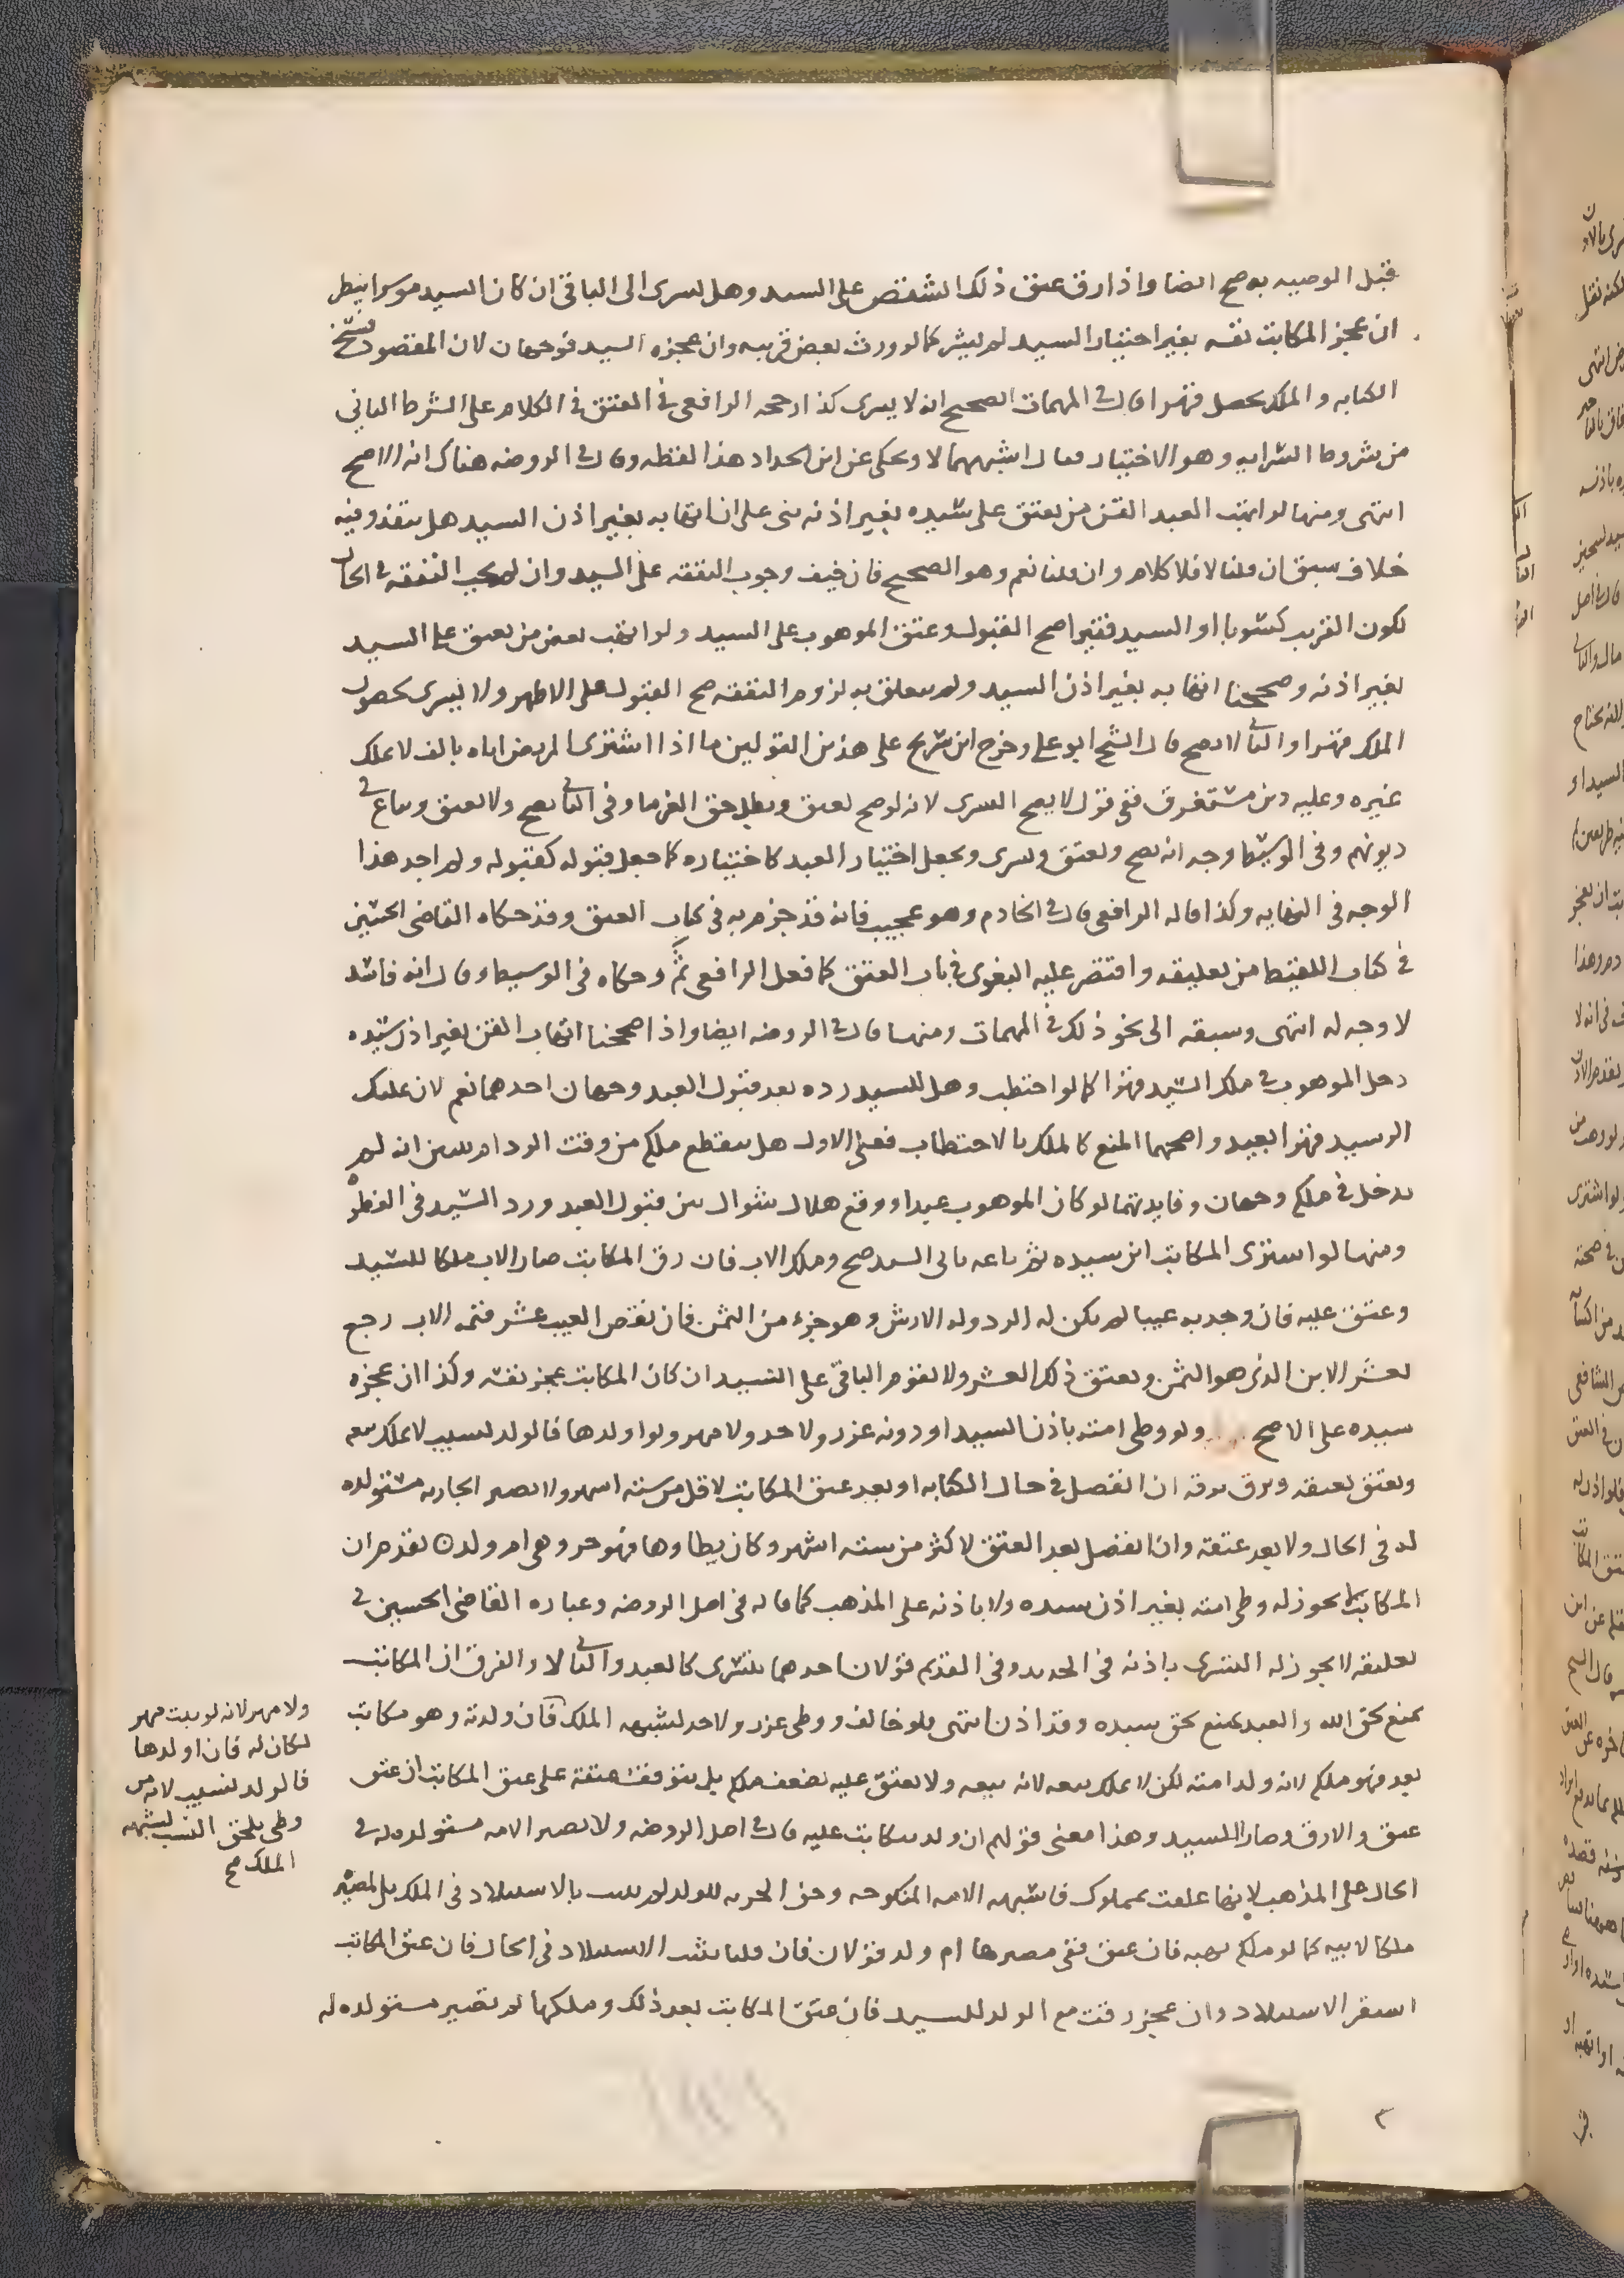 قبل الوصيه به صح ايضا واذا رق عتق ذلك الشقص على السيد وهل يسرى الى الباقى ان كان السيد موسرا ينظر
ان عجز المكاتب نفسه بغير اختيار السيد لم يسر كما لو ورث بعض قريبه وان عجزه السيد فوجهان لان المقصود فسخ
الكتابه والملك يحصل قهرا قال فى المهمات الصحيح انه لا يسرى كذا رجحه الرافعى فى العتق فى الكلام على الشرط الثانى
من شروط السرايه وهو الاختيار فقال اشبههما لا ويحكى عن ابن الحداد هذا لفظه وقال فى الروضه هناك انه الاصح
انتهى ومنها لو اتهب العبد القن من يعتق على سيده بغير اذنه بنى على ان اتهابه بغير اذن السيد هل ينفذ وفيه
خلاف سبق ان قلنا لا فلا كلام وان قلنا نعم وهو الصحيح فان خيف وجوب النفقه على السيد وان لم يجب النفقه فى الحال
لكون القريب كسوبا او السيد فقيرا صح القبول وعتق الموهوب على السيد ولو اتهب بعض من يعتق على السيد
بغير اذنه وصححنا اتهابه بغير اذن السيد ولم يتعلق به لزوم النفقه صح القبول على الاظهر ولا يسرى لحصول
الملك قهرا والثانى لا يصح قال الشيخ ابو على وخرج ابن سريج على هذين القولين ما اذا اشترى المريض اباه بالف لا يملك
غيره وعليه دين مستغرق ففى قول لا يصح الشرى لانه لو صح لعتق وبطل حق الغرما وفى الثانى يصح ولا يعتق ويباع فى
ديونهم وفى الوسيط وجه انه يصح ويعتق ويسرى ويجعل اختيار العبد كاختياره كما جعل قبوله كقبوله ولم اجد هذا
الوجه فى النهايه وكذا قاله الرافعى قال فى الخادم وهو عجيب فانه قد جزم به فى كتاب العتق وقد حكاه القاضى الحسين
فى كتاب اللقيط من تعليقه واقتصر عليه البغوى فى باب العتق كما فعل الرافعى ثم وحكاه فى الوسيط وقال انه فاسد
لا وجه له انتهى وسبقه الى نحو ذلك فى المهمات ومنها قال فى الروضه ايضا واذا صححنا اتهاب القن بغير اذن سيده
دخل الموهوب فى ملك السيد قهرا كما لو احتطب وهل للسيد رده بعد قبول العبد وجهان احدهما نعم لان تمليك
الرسيد قهرا بعيد واصحهما المنع كالملك بالاحتطاب فعلى الاول هل ينقطع ملكه من وقت الرد ام يتبين انه لم
يدخل فى ملكه وجهان وفايدتهما لو كان الموهوب عبدا ووقع هلال شوال بين قبول العبد ورد السيد فى الفطره
ومنها لو اشترى المكاتب ابن سيده ثم باعه بابى السيد صح وملك الاب فان رق المكاتب صار الاب ملكا للسيد
وعتق عليه فان وجد به عيبا لم يكن له الرد وله الارش وهو جزء من الثمن فان نقص العيب عشر قيمه الاب رجع
بعشر الابن الذى هو الثمن ويعتق ذلك العشر ولا يقوم الباقى على السيد ان كان المكاتب عجز نفسه وكذا ان عجزه
سيده على الاصح ولو وطى امته باذن السيد او دونه عزر ولا حد ولا مهر ولو اولدها فالولد نسيب لا يملك بيعه
ويعتق بعتقه ويرق برقه ان انفصل فى حال الكتابه او بعد عتق المكاتب لاقل من سته اشهر ولا تصير الجاريه مستولده
له فى الحال ولا بعد عتقه وان انفصل بعد العتق لاكثر من سته اشهر وكان يطاوها فهو حر وهى ام ولد ه تقدم ان
المكاتب لا يجوز له وطى امته بغير اذن سيده ولا باذنه على المذهب كما قاله فى اصل الروضه وعباره القاضى الحسين فى
تعليقه لا يجوز له التسرى باذنه فى الجديد وفى القديم قولان احدهما يتسرى كالعبد والثانى لا والفرق ان المكاتب
يمنع لحق الله والعبد يمنع لحق سيده وقد اذن انتهى فلو خالف ووطى عزر ولا حد لشبهه الملك فان ولدته وهو مكاتب
بعد فهو ملكه لانه ولد امته لكن لا يملك بيعه لانه يبيعه ولا يعتق عليه لضعف ملكه بل يتوقف عتقه على عتق المكاتب ان عتق
عتق والا رق وصار للسيد وهذا معنى قولهم ان ولده مكاتب عليه قال فى اصل الروضه ولا تصير الامه مستولده له فى
الحال على المذهب لانها علقت بمملوك فاشبهه الامه المنكوحه وحق الحريه للولد لم يثبت بالاستيلاد فى الملك بل لمصيره
ملكا لابيه كما لو ملكه بهبه فان عتق ففى مصيرها ام ولد قولان فان قلنا يثبت الاستيلاد فى الحال فان عتق المكاتب
استقر الاستيلاد وان عجز رقت مع الولد للسيد فان عتق المكاتب بعد ذلك وملكها لم تصير مستولده له
ولا مهر لانه لو ثبت مهر
لكان له فان اولدها
فالولد نسيب لانه من
وطى يلحق النسب لشبهه
الملك صح